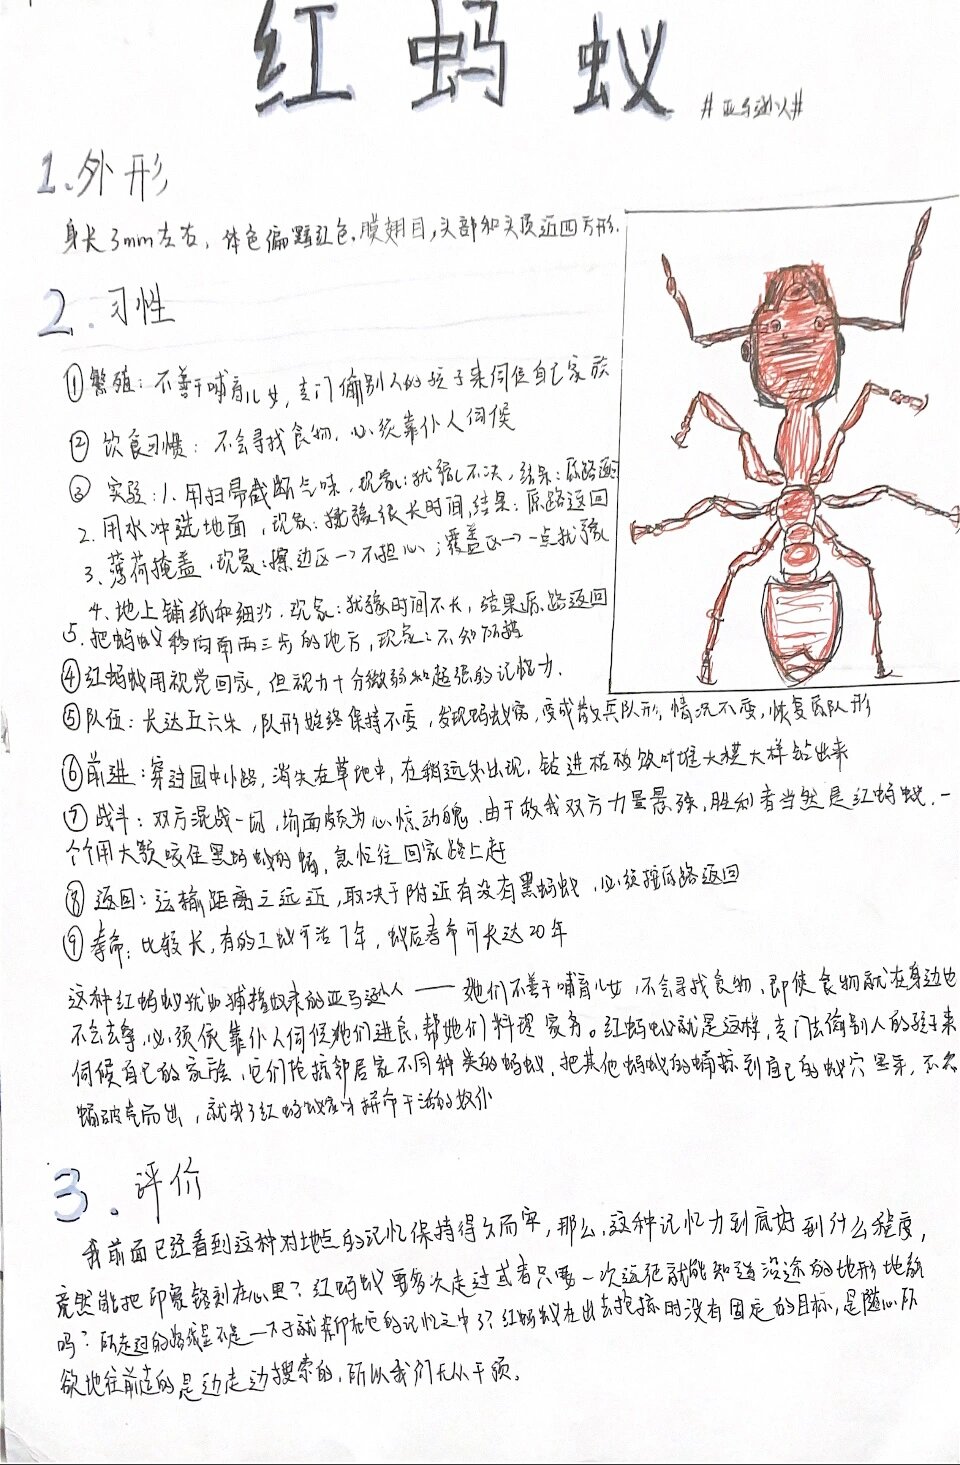 红蚂蚁
#亚马逊人#
1.外形
身长3mm左右，体色偏黯红色，膜翅目，头部和头顶近四方形.
2.习性
①繁殖：不善于哺育儿女，专门偷别人的孩子来伺候自己家族
②饮食习惯：不会寻找食物，必须靠仆人伺候
③实验：1.用扫帚截断气味，现象：犹豫不决，结果：原路返
2.用水冲洗地面，现象：犹豫很长时间，结果：原路返回
3.薄荷掩盖，现象：擦边区→不担心；覆盖区→一点犹豫
4.地上铺纸和细沙，现象：犹豫时间不长，结果原路返回
5.把蚂蚁移向南两三步的地方，现象：不知所措
④红蚂蚁用视觉回家，但视力十分微弱和超强的记忆力.
⑤队伍：长达五六米，队形始终保持不变，发现蚂蚁窝，变成散兵队形，情况不变，恢复原队形
⑥前进：穿过园中小路，消失在草地中，在稍远处出现，钻进枯枝败叶堆大模大样钻出来
⑦战斗：双方混战一团，场面颇为心惊动魄，由于敌我双方力量悬殊，胜利者当然是红蚂蚁，一
个个用大颚咬住黑蚂蚁的蛹，急忙往回家路上赶
⑧返回：运输距离之远近，取决于附近有没有黑蚂蚁，必须按原路返回
⑨寿命：比较长，有的工蚁可活7年，蚁后寿命可长达20年
这种红蚂蚁犹如捕捉奴隶的亚马逊人——她们不善于哺育儿女，不会寻找食物，即使食物就在身边也
不会去拿，必须依靠仆人伺候她们进食，帮她们料理家务。红蚂蚁就是这样，专门去偷别人的孩子来
伺候自己的家族，它们抢掠邻居家不同种类的蚂蚁，把其他蚂蚁的蛹掠到自己的蚁穴里来，不久
蛹破壳而出，就成了红蚂蚁家拼命干活的奴仆
3.评价
我前面已经看到这种对地点的记忆保持得久而牢，那么，这种记忆力到底好到什么程度，
竟然能把印象铭刻在心里？红蚂蚁要多次走过或者只要一次远征就能知道沿途的地形地貌
吗？所走过的路线是不是一下子就刻在它的记忆之中了？红蚂蚁在出去抢掠时没有固定的目标，是随心所
欲地往前走的是边走边搜索的，所以我们无从干预。